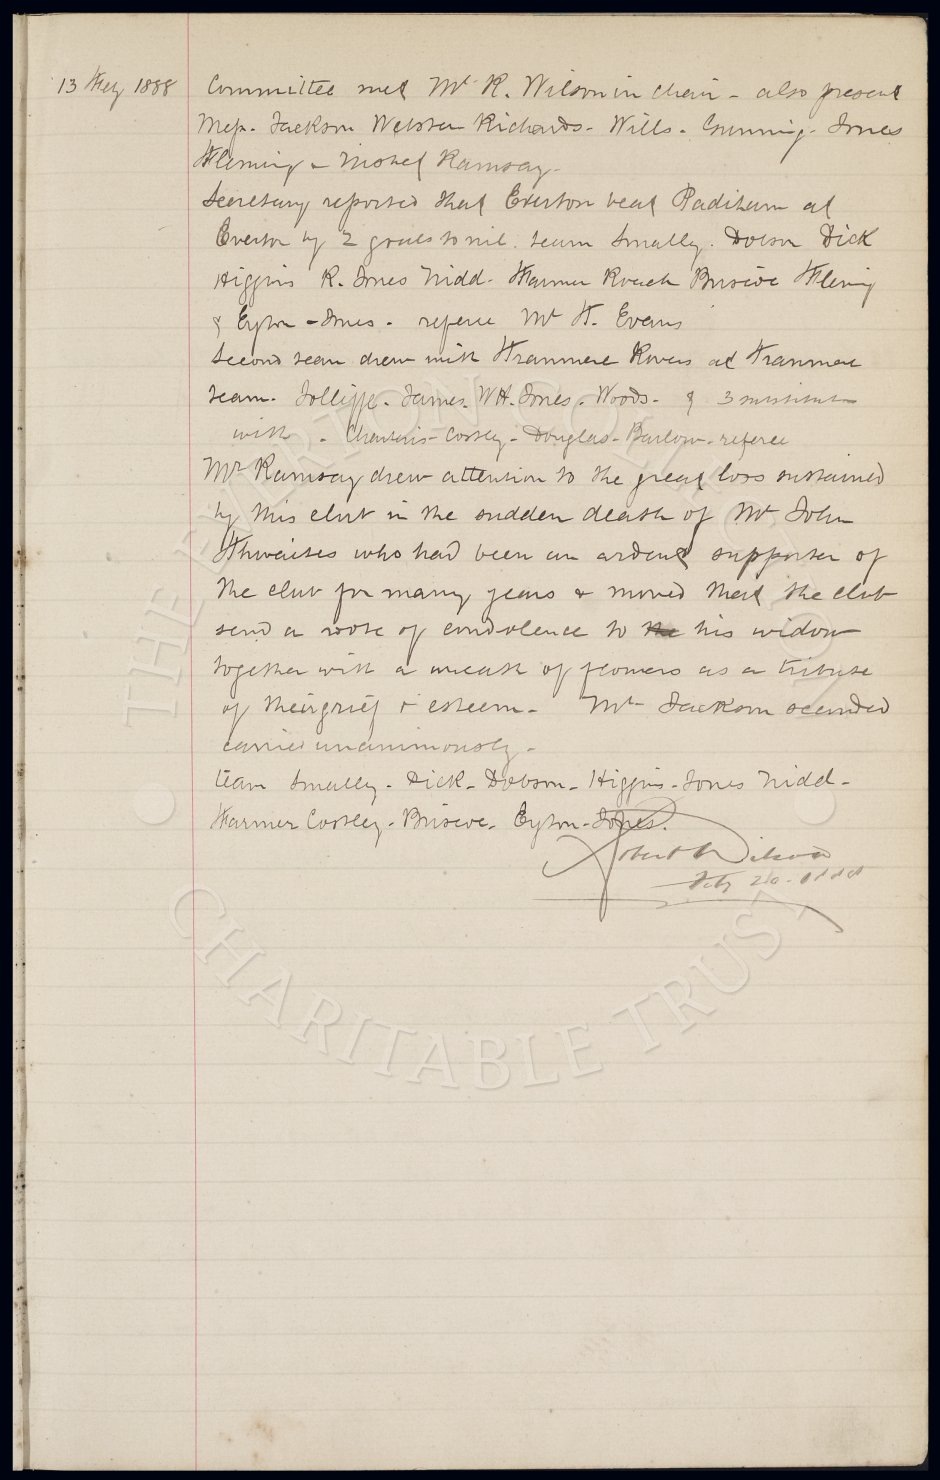 13 Feby 1888
Committee met Mr R. Wilson in chair - also present
Mess. Jackson Webster Richards - Wills - Gunning - Jones
Fleming & Ramsay -
Secretary reported that Everton beat Padiham at
Everton by 2 goals to nil. team Smally. Dobson Dick
Higgins R. Jones Nidd - Farmer Roach Briscoe Fleming
& Eyton - Jones - referee Mr H. Evans
Second team drew with Tranmere Rovers at Tranmere
team - Jolliffe - James - WH. Jones - Woods - & 3 substitutes
with - Charteris - Costley - Douglas - Barlow - referee
Mr Ramsay drew attention to the great loss sustained
by this club in the sudden death of Mr John
Thwaites who had been an ardent supporter of
the club for many years & moved that the club
send a vote of condolence to the his widow
together with a wreath of flowers as a tribute
of their grief & esteem - Mr Jackson seconded
carried unanimously -
team Smally - Dick - Dobson - Higgins - Jones Nidd -
Farmer Costley - Briscoe - Eyton - Jones.
Robert Wilson
Feb 20 - 1888
THE EVERTON COLLECTION
CHARITABLE TRUST